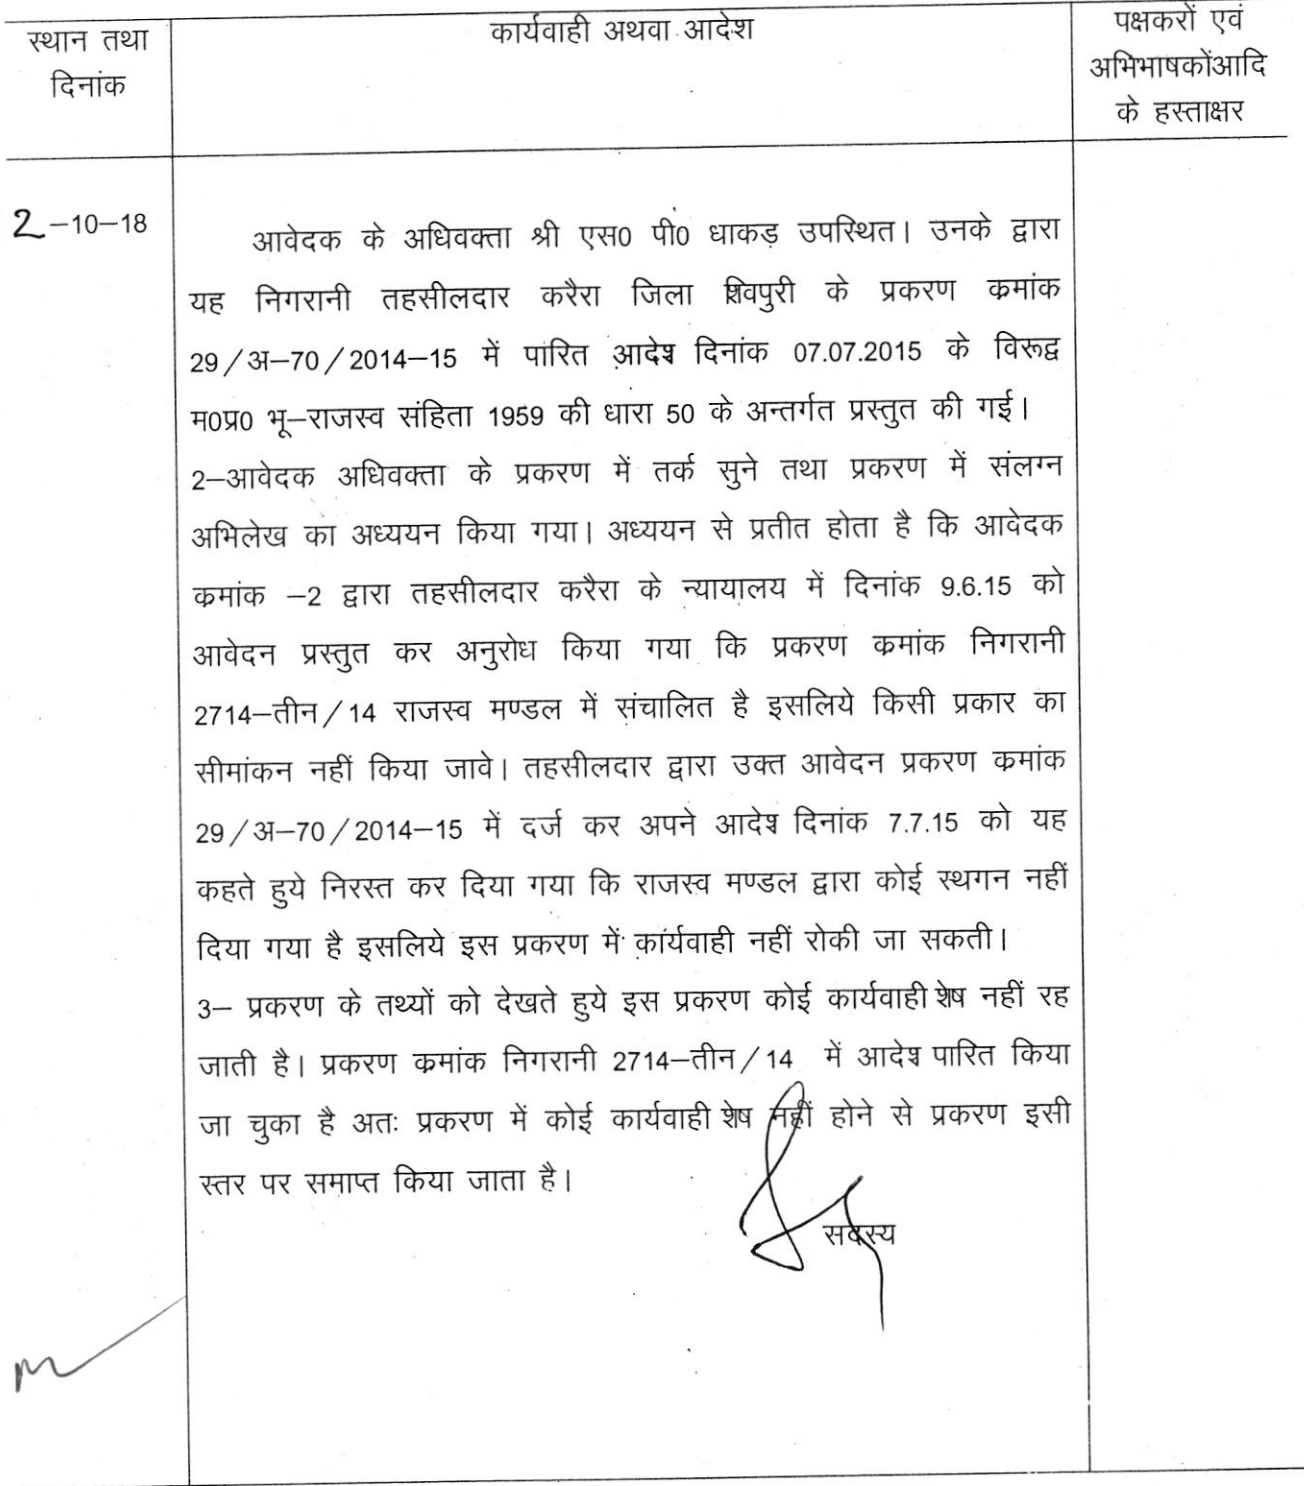 स्थान तथा
दिनांक
कार्यवाही अथवा आदेश
पक्षकरों एवं
अभिभाषकोंआदि
के हस्ताक्षर
2–10–18
आवेदक के अधिवक्ता श्री एस0 पी0 धाकड़ उपस्थित। उनके द्वारा
यह निगरानी तहसीलदार करैरा जिला शिवपुरी के प्रकरण कमांक
29/अ–70/2014–15 में पारित आदेश दिनांक 07.07.2015 के विरूद्व
म0प्र0 भू–राजस्व संहिता 1959 की धारा 50 के अन्तर्गत प्रस्तुत की गई।
2–आवेदक अधिवक्ता के प्रकरण में तर्क सुने तथा प्रकरण में संलग्न
अभिलेख का अध्ययन किया गया। अध्ययन से प्रतीत होता है कि आवेदक
कमांक –2 द्वारा तहसीलदार करैरा के न्यायालय में दिनांक 9.6.15 को
आवेदन प्रस्तुत कर अनुरोध किया गया कि प्रकरण कमांक निगरानी
2714–तीन/14 राजस्व मण्डल में संचालित है इसलिये किसी प्रकार का
सीमांकन नहीं किया जावे। तहसीलदार द्वारा उक्त आवेदन प्रकरण कमांक
29/अ–70/2014–15 में दर्ज कर अपने आदेश दिनांक 7.7.15 को यह
कहते हुये निरस्त कर दिया गया कि राजस्व मण्डल द्वारा कोई स्थगन नहीं
दिया गया है इसलिये इस प्रकरण में कार्यवाही नहीं रोकी जा सकती।
3– प्रकरण के तथ्यों को देखते हुये इस प्रकरण कोई कार्यवाही शेष नहीं रह
जाती है। प्रकरण कमांक निगरानी 2714–तीन/14 में आदेश पारित किया
जा चुका है अतः प्रकरण में कोई कार्यवाही शेष नहीं होने से प्रकरण इसी
स्तर पर समाप्त किया जाता है।
सदस्य